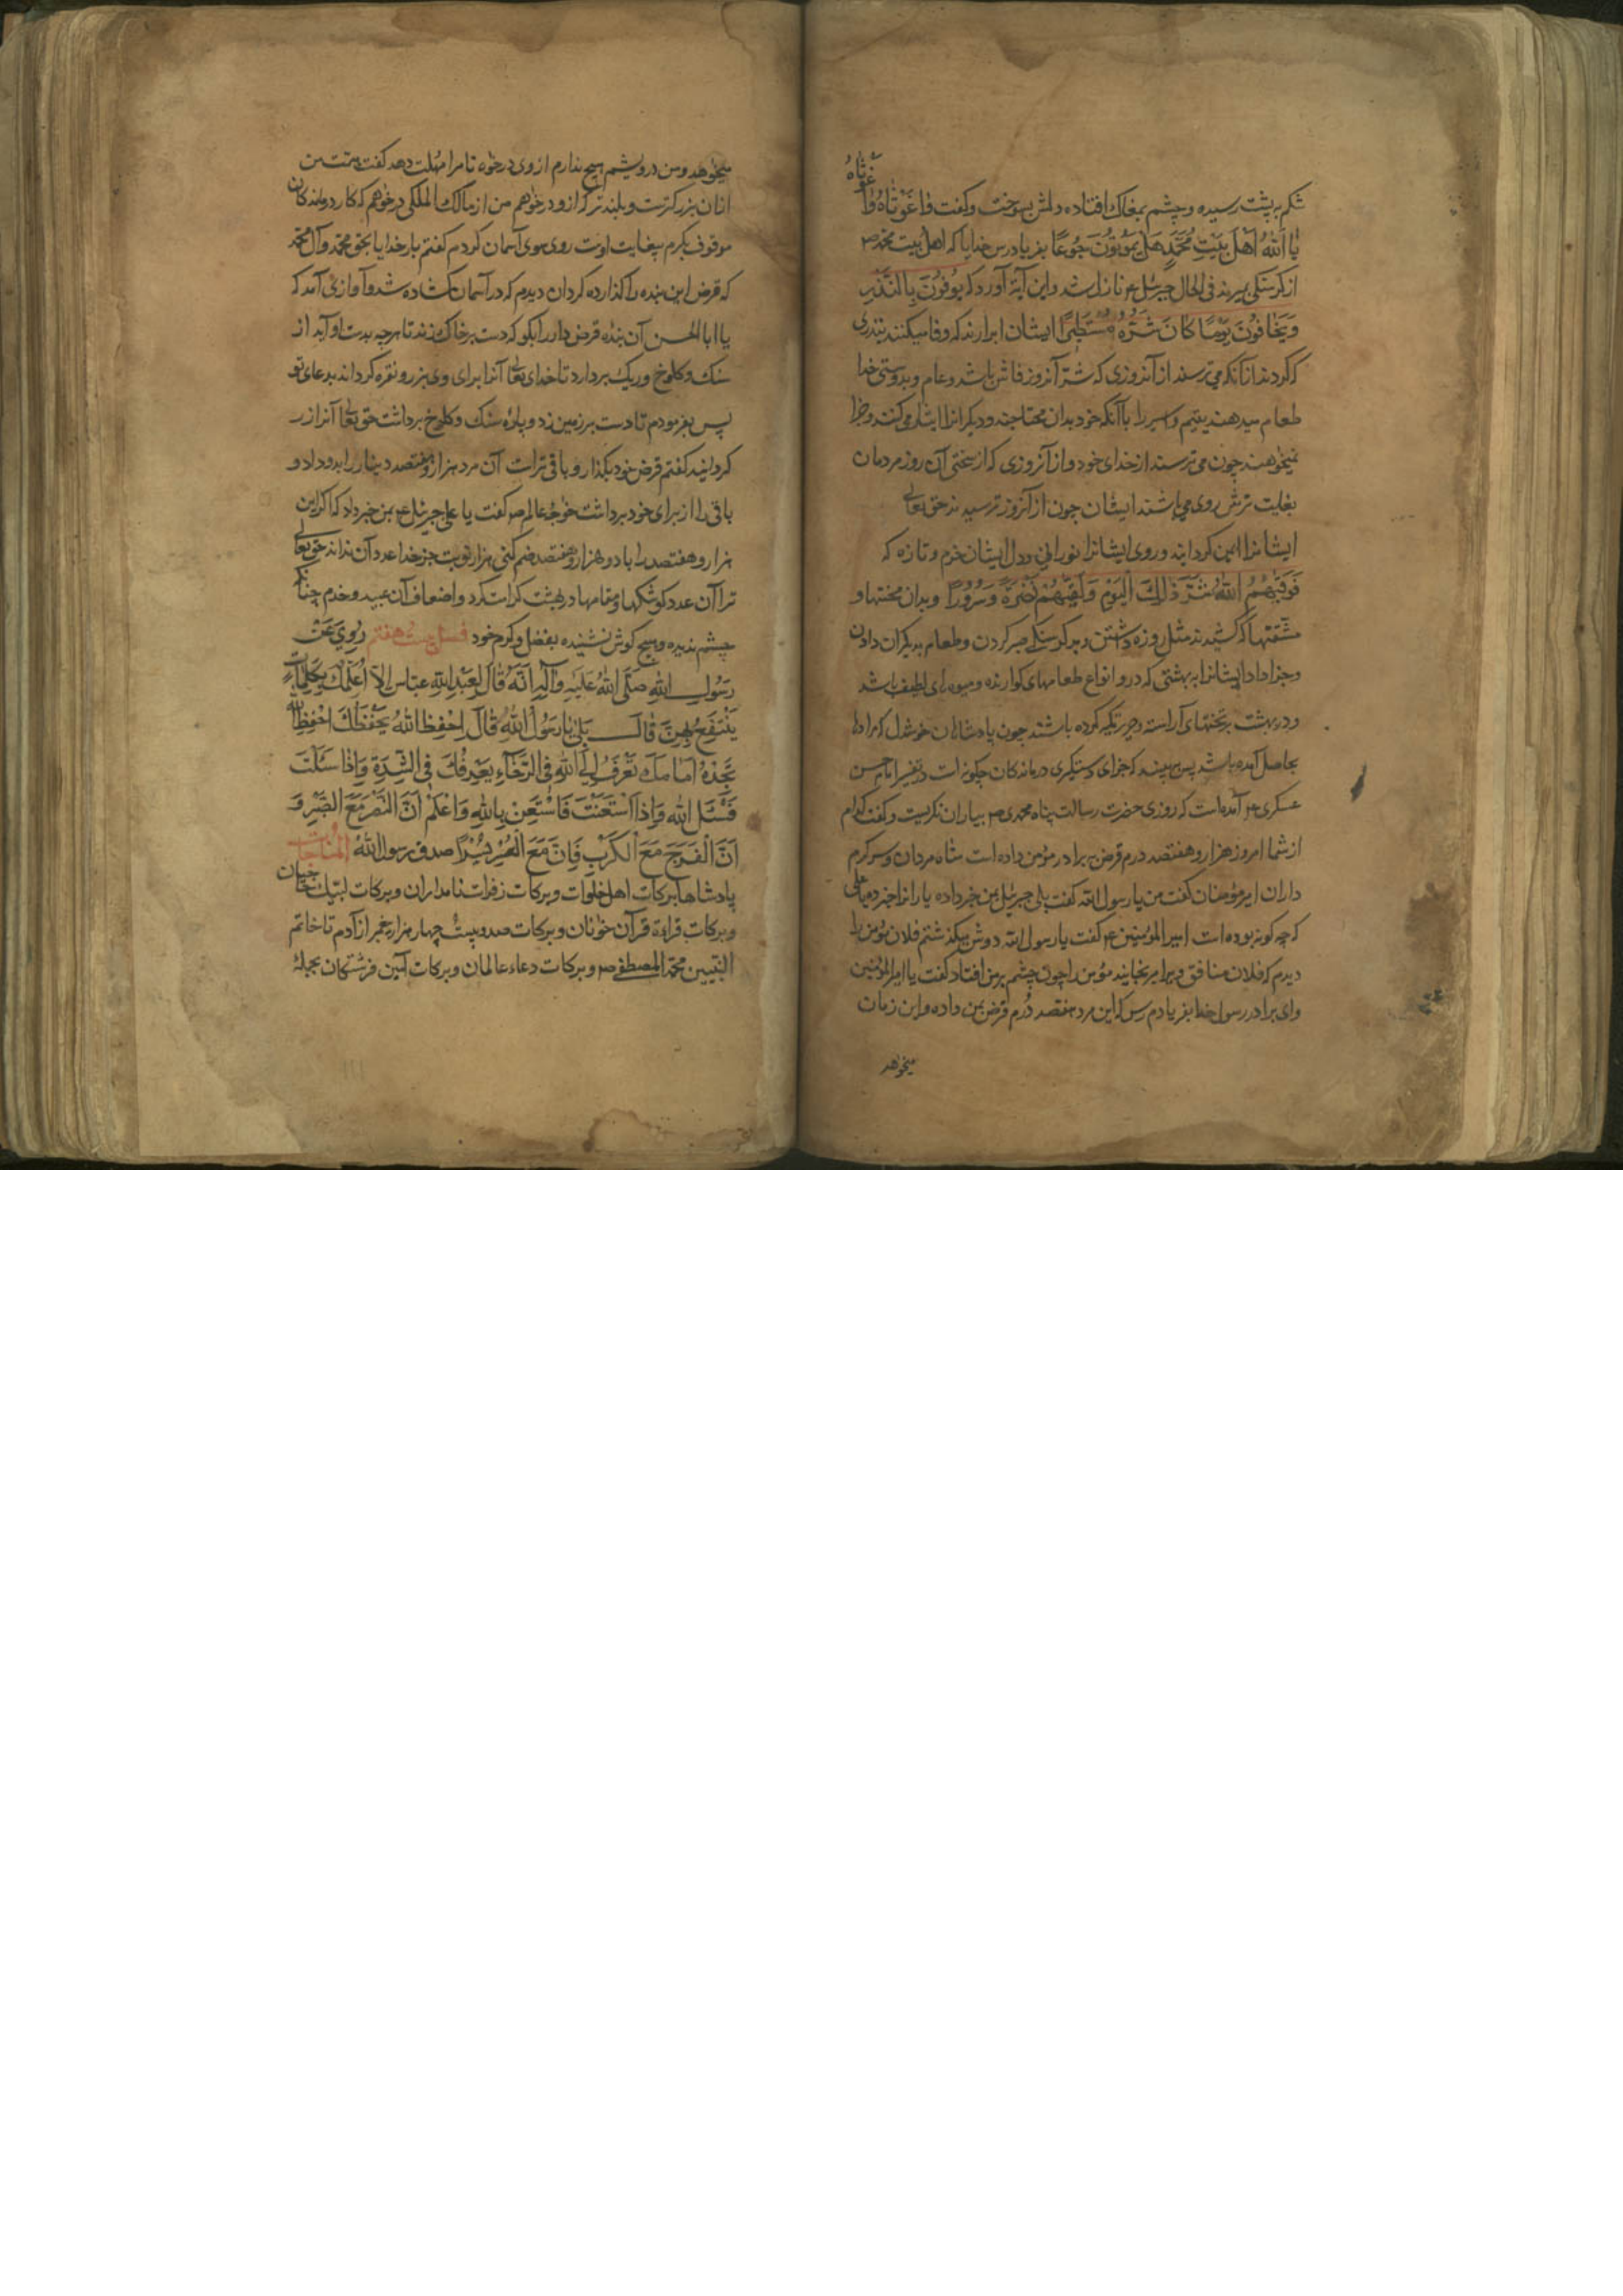 غوثاه
شکم به پشت رسیده و چشم بمغاک افتاده دلش بسوخت و گفت وا غَوْثَاهُ وَا
یَا اَللّٰهُ اَهْلَ بَیْتِ مُحَمَّدٍ هَلْ یَمُوتُونَ جُوعًا بفریاد رس خدایا که اهل بیت محمد ص
از کرسنکی بمیرند فی الحال جبرئیل ع نازل شد و این آیة آورد که یُوفُونَ بِالنَّذْرِ
وَیَخَافُونَ یَوْمًا کَانَ شَرُّهُ مُسْتَطِیرًا ایشان ابرارند که وفا میکنند بنذری
که کردند از آنکه می ترسند از آنروزی که شرّ آنروز فاش باشد و عام و بدوستی خدا
طعام میدهند یتیم و اسیر را با آنکه خود بدان محتاجند و دیکرانرا ایثار می کنند و جزا
نمیخواهند چون می ترسند از خدای خود و از آنروزی که از سختی آن روز مردمان
بغایت ترش روی می باشند ایشان چون از آنروز ترسیدند حق تعالی
ایشانرا ایمن کردانید و روی ایشانرا نورانی و دل ایشان خرم و تازه که
فَوَقٰیهُمُ اللّٰهُ شَرَّ ذٰلِکَ الْیَوْمِ وَلَقّٰیهُمْ نَضْرَةً وَسُرُورًا و بدان محنتها و
مشقتها که کشیدند مثل روزه داشتن و بر کرسنکی صبر کردن و طعام بدیکران دادن
و جزا داد ایشانرا به بهشتی که درو انواع طعامهای کوارنده و میوه‌ای لطیف باشد
و در بهشت بر تختهای آراسته و حریر تکیه کرده باشند چون پادشاهان خوشدل که مرادها
بحاصل آمده باشد پس ببیند که جزای دستکیری درماندکان چکونه است در تفسیر امام حسن
عسکری ع آمده است که روزی حضرت رسالت پناه محمدی ص بیاران نکریست و کفت کدام
از شما امروز هزار و هفتصد درم قرض برادر مؤمن داده است شاه مردان و سر کرم
داران امیر مؤمنان کفت من یا رسول الله کفت بلی جبرئیل بمن خبر داده یارانرا خبر ده یا علی
که چه کونه بوده است امیر المؤمنین ع کفت یا رسول الله دوش میکذشتم فلان مؤمن را
دیدم که فلان منافق ویرا میرنجانید مؤمن را چون چشم بر من افتاد کفت یا امیر المؤمنین
وای برادر رسول خدا بفریادم رس که این مرد هفتصد دُرم قرض بمن داده و این زمان
میخواهد
میخواهد و من درویشم هیچ ندارم از وی درخواه تا مرا مهلت دهد کفت منت من
از آن بزرکترست و بلندتر که ازو درخواهم من از مالک الملکی درخواهم که کار درماندکان
موقوف بکرم بیغایت اوست روی سوی آسمان کردم کفتم بار خدایا بحق محمد و آل محمد
که قرض این بنده را کذارده کردان دیدم که در آسمان کشاده شد و آوازی آمد که
یا ابا الحسن آن بنده قرض دار را بکو که دست بر خاک زند تا هر چه بدست او آید از
سنک و کلوخ و ریک بردارد تا خدای تعالی آنرا برای وی بزر و نقره کرداند بدعای تو
پس بفرمودم تا دست بر زمین زد و پاره سنک و کلوخ برداشت حق تعالی آنرا زر
کردانید کفتم قرض خود بکذار و باقی تراست آن مرد هزار و هفتصد دینار را بدو داد و
باقی را از برای خود برداشت خواجه عالم ص کفت یا علی جبرئیل ع بمن خبر داد که اکر این
هزار و هفتصد را با دو هزار و هفتصد ضم کنی هزار نوبت جز خدا عدد آن نداند حق تعالی
ترا آن عدد کوشکها و مقامها در بهشت کرامت کرد و اضعاف آن عبید و خدم چنانکه
چشم ندیده و هیچ کوش نشنیده بفضل و کرم خود فصل بیست هفتم رُوِیَ عَنْ
رَسُولِ اللّٰهِ صَلَّی اللّٰهُ عَلَیْهِ وَآلِهِ اَنَّهُ قَالَ لِعَبْدِ اللّٰهِ عباس اَلَا اُعَلِّمُکَ بِکَلِمَاتٍ
یَنْتَفِعُ بِهِنَّ قَالَ بَلٰی یَا رَسُولَ اللّٰهِ قَالَ اِحْفِظِ اللّٰهَ یَحْفَظْکَ احْفِظِ اللّٰهَ
تَجِدْهُ اَمَامَکَ تَعَرَّفْ اِلَی اللّٰهِ فِی الرَّخَاءِ یَعْرِفُکَ فِی الشِّدَّةِ وَاِذَا سَئَلْتَ
فَسْئَلِ اللّٰهَ وَاِذَا اسْتَعَنْتَ فَاسْتَعِنْ بِاللّٰهِ وَاعْلَمْ اَنَّ النَّصْرَ مَعَ الصَّبْرِ وَ
اَنَّ الْفَرَجَ مَعَ الْکَرْبِ فَاِنَّ مَعَ الْعُسْرِ یُسْرًا صدق رسول اللّٰه المناجات
پادشاها ببرکات اهل خلوات و برکات زفرات نامداران و برکات لبیک حاجیان
و برکات قراءة قرآن خوانان و برکات صد و بیست چهار هزار پیغمبر از آدم تا خاتم
النبیین محمد المصطفی ص و برکات دعاء عالمان و برکات آمین فرشتکان بجمله